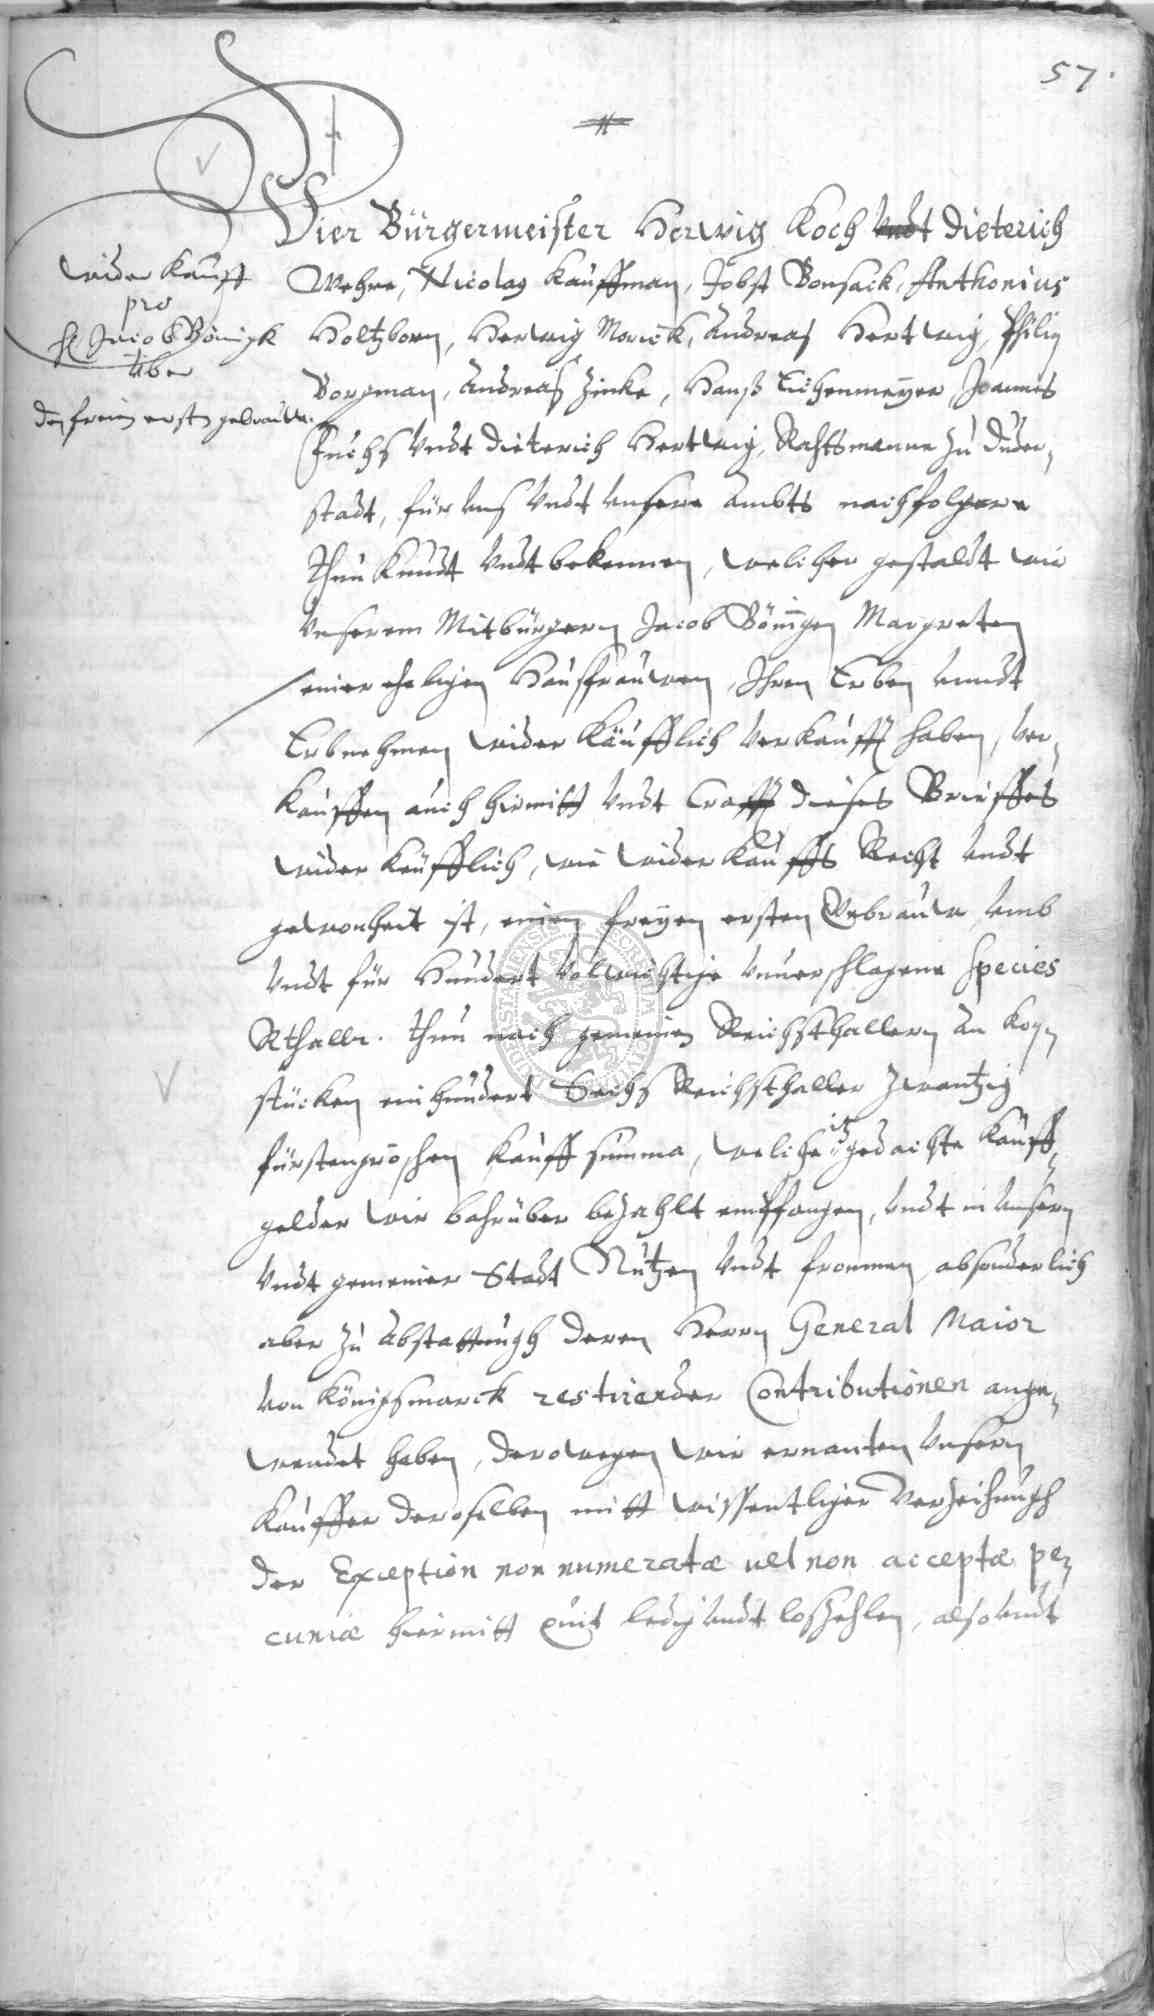 57.
Wier Bürgermeister Herwig Koch undt Dieterich
Wehre, Nicolaq Kauffman, Jobst Bonsack, Anthonius
Holtzborn, Herwig Morick, Andreas Hertwig, Philip
Borgman, Andreas Zinke, Hanß Eichenmeyer, Joannes
Fuchs undt Dieterich Hertwig, Rahtsmanne zu Duder-
stadt, für uns undt unsere Ambts nachfolgere
thun kundt undt bekennen, welicher gestaldt wir
unserem Mitbürgern Jacob Bönigen Margreten
seiner eheligen Hausfrauwen, Ihren Erben unndt
Erbnehmen wider käufflich verkaufft haben, ver-
kauffen auch hirmitt undt Crafft dieses Brieffes
wider keufflich, wie wider kauffs Recht undt
gewonheit ist, einen freyen ersten Gebrauw, umb
undt für Hundert volwichtige unverschlagene Species
Rthallr. thun nach gemeinen Reichsthallern an Kop-
stücken einhundert Sechs Reichsthaller zwantzig
fürstengroschen kauff summa, weliche itz gedachte kauff
gelder wir bahrüber bezahlt empfangen, undt in unsern
undt gemeiner Stadt Nutzen undt frommen, absonderlich
aber zu abstattungh deren Herrn General Maior
von Königsmarck restirender Contributionen ange-
wendet haben, derowegen wir ernanten unsern
kauffer deroselben mitt wissentliger Verzeihungh
der Exception non numeratæ vel non acceptæ pe-
cuniæ hiermitt quit ledig undt loszehlen, also undt
wider kauff
pro
H Jacob Bönigk
über
den freien ersten gebrauw.